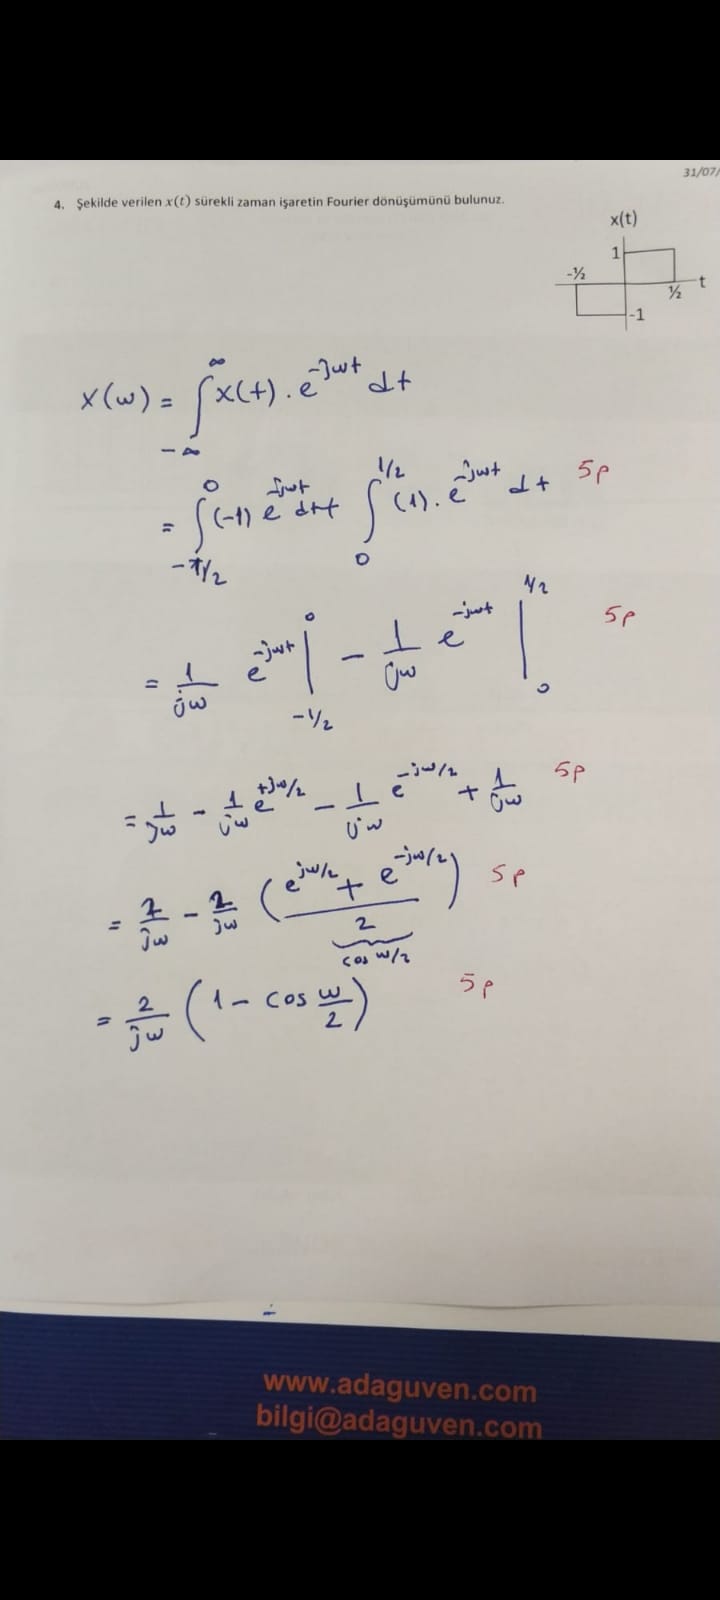 31/07/
4. Şekilde verilen x(t) sürekli zaman işaretin Fourier dönüşümünü bulunuz.
x(t)
1
-½
t
½
-1
X(w) = ∫_{-∞}^{∞} x(t) . e^{-jwt} dt
= ∫_{-1/2}^{0} (-1) e^{-jwt} dt + ∫_{0}^{1/2} (1) . e^{-jwt} dt 5p
= 1/jw e^{-jwt} |_{-1/2}^{0} - 1/jw e^{-jwt} |_{0}^{1/2} 5p
= 1/jw - 1/jw e^{+jw/2} - 1/jw e^{-jw/2} + 1/jw 5p
= 2/jw - 2/jw ( (e^{jw/2} + e^{-jw/2}) / 2 ) 5p
cos w/2
= 2/jw ( 1 - cos w/2 ) 5p
www.adaguven.com
bilgi@adaguven.com